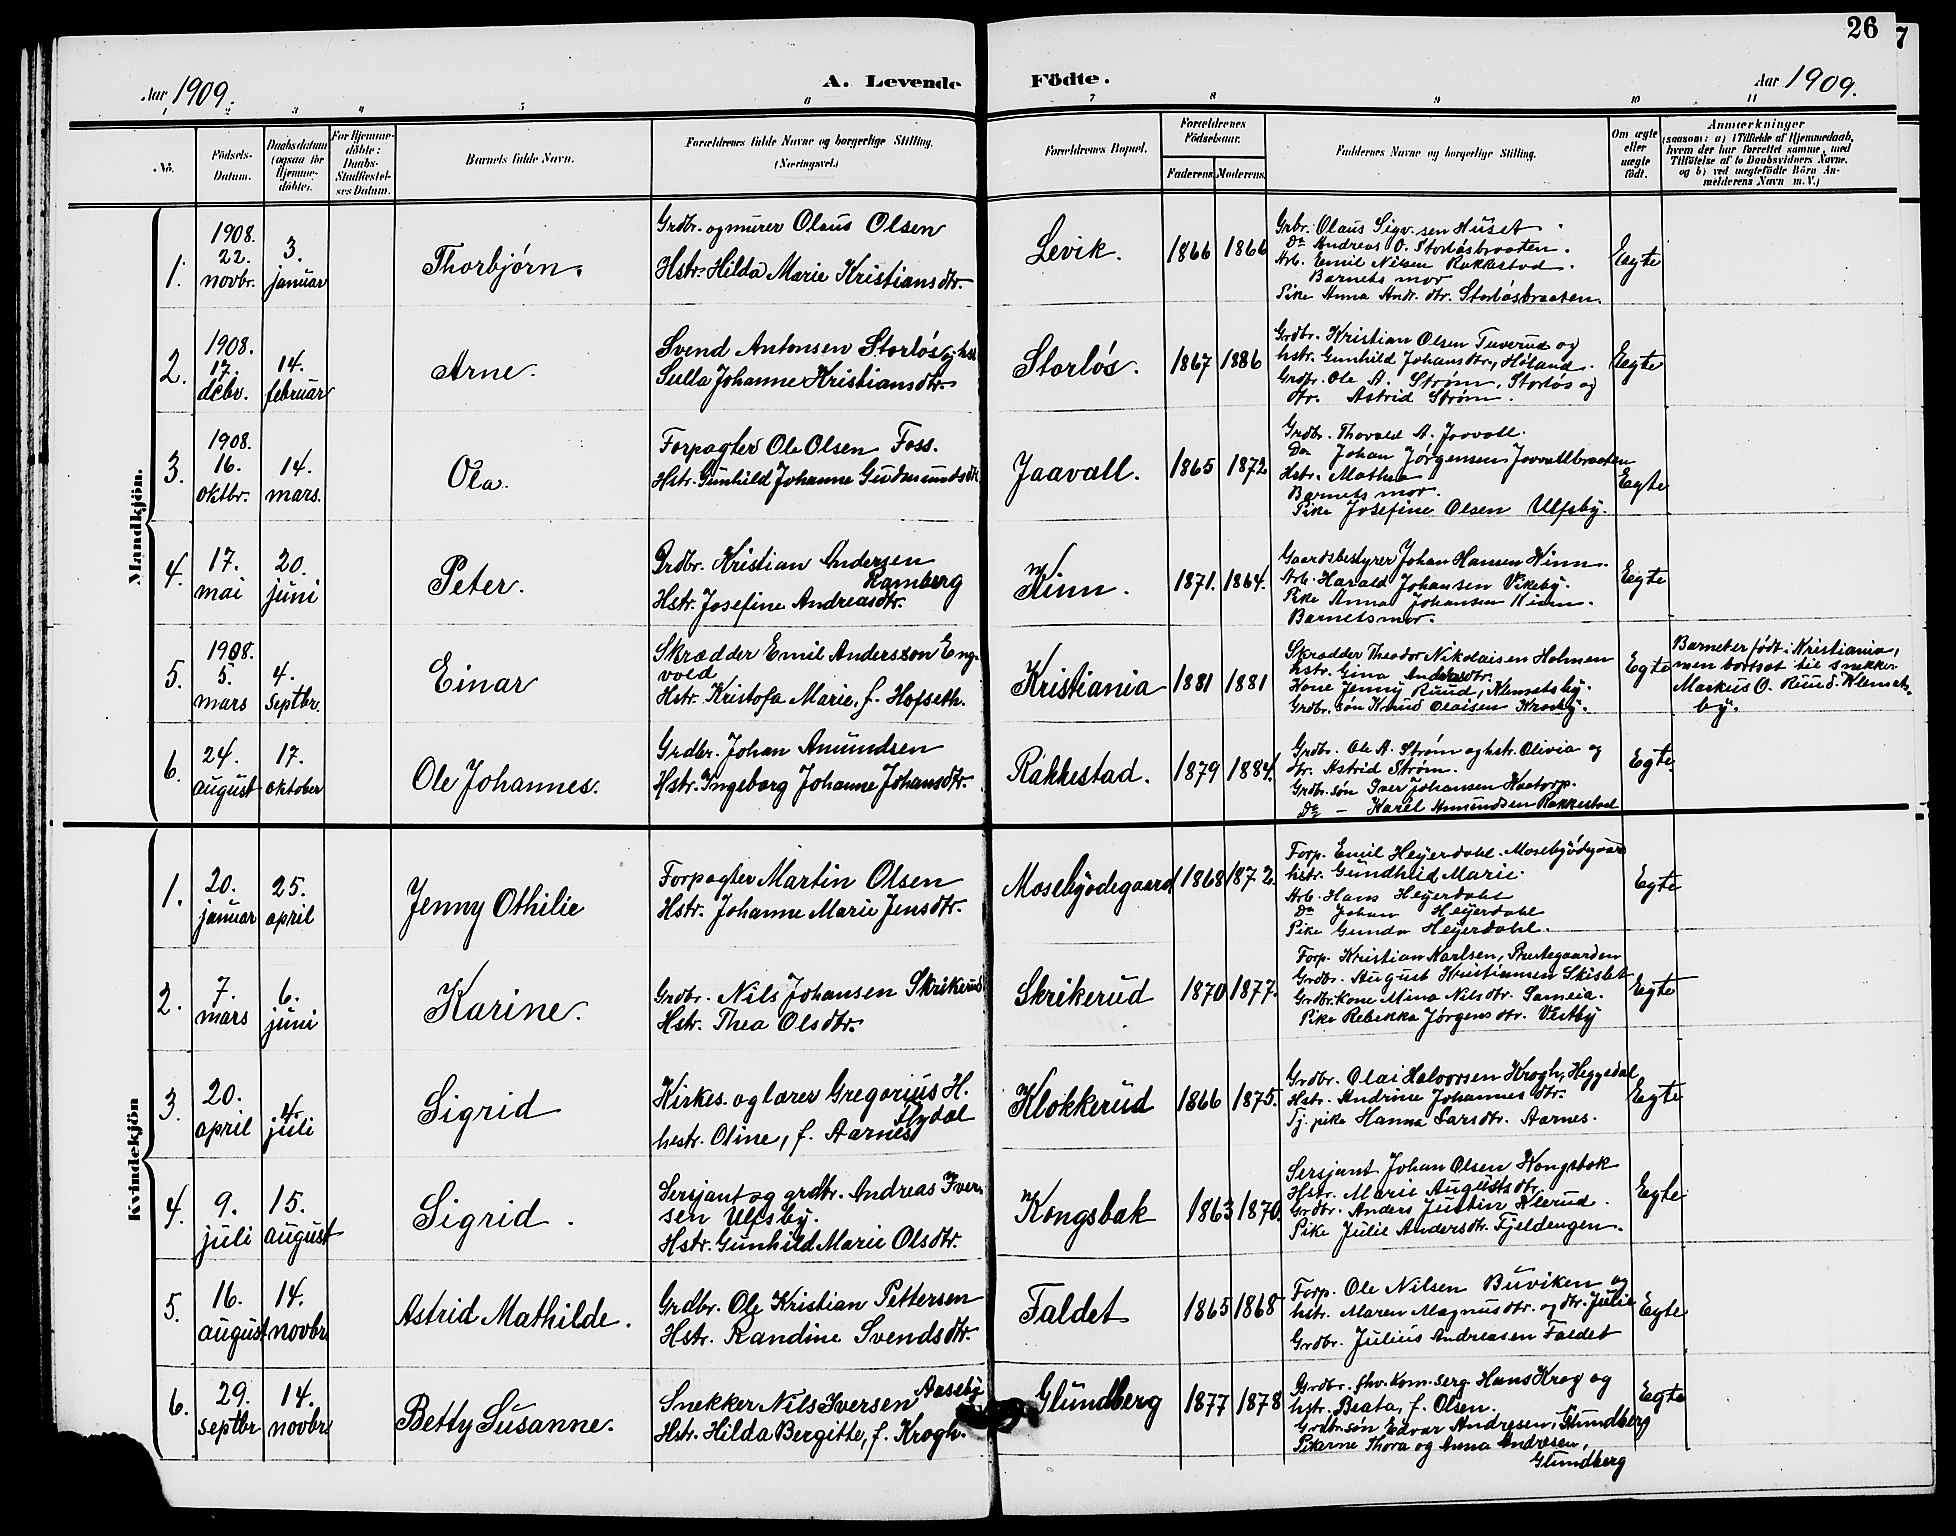 26
7
Aar 1909.
A. Levende Födte.
Aar 1909.
1 2 3 4 5 6 7 8 9 10 11
No.
Födsels-
Datum.
Daabsdatum
(ogsaa for
Hjemme-
döbte).
For Hjemme-
döbte:
Daabs-
Stadfæstel-
ses Datum.
Barnets fulde Navn.
Forældrenes fulde Navne og borgerlige Stilling.
(Næringsvei.)
Forældrenes Bopæl.
Forældrenes
Födselsaar.
Faderens.
Moderens.
Faddernes Navne og borgerlige Stilling.
Om ægte
eller
uægte
födt.
Anmærkninger
(saasom: a) i Tilfælde af Hjemmedaab,
hvem der har forrettet samme, med
Tilföielse af to Daabsvidners Navne,
og b) ved uægtefödte Börn An-
melderens Navn m. V.)
Mandkjön.
1.
1908.
22.
novbr.
3.
januar
Thorbjørn.
Grdbr. og murer Olaus Olsen
Hstr. Hilda Marie Kristiansdtr.
Levik.
1866
1866
Grbr. Olaus Sigv. sen Huset
Do Andreas O. Storløsbraaten.
Arb. Emil Nilsen Rakkestad.
Barnets mor
Pike Anna Andr. dtr. Storløsbraaten.
Egte
2.
1908.
17.
debr.
14.
februar
Arne.
Svend Antonsen Storløs og hst
Sulla Johanne Kristiansdtr.
Storløs.
1867
1886
Grdbr. Kristian Olsen Tuverud og
hstr. Gunhild Johansdtr, Høland.
Grdbr. Ole A. Strøm, Storløs og
dtr. Astrid Strøm.
Egte
3.
1908.
16.
oktbr.
14.
mars.
Ola.
Forpagter Ole Olsen Foss.
Hstr. Gunhild Johanne Gudmundsdtr
Jaavall.
1865
1872
Grdbr. Thovald A. Jaavall.
Do Johan Jørgensen Jaavallbraaten
Hstr. Mathea
Barnets mor.
Pike Josefine Olsen Ulfsby.
Egte
4.
17.
mai
20.
juni
Peter.
Grdbr. Kristian Andersen
Ramberg
Hstr. Josefine Andreasdtr.
Kinn.
1871.
1864.
Gaardsbestyrer Johan Hansen Kinn.
Arb. Harald Johansen Vikeby.
Pike Anna Johansen Kinn.
Barnets mor.
Egte
5.
1908.
5.
mars
4.
Septbr.
Einar
Skrædder Emil Andersson Eng-
vold
Hstr. Kristofa Marie, f. Hofseth.
Kristiania
1881
1881
Skrædder Theodor Nikolaisen Holmen
hstr. Gina Andersdtr.
Kone Jenny Ruud, Klemetsby.
Grdbr. søn Knud Olaisen Krosby.
Egte
Barnet er født i Kristiania,
men bortsat til snekker
Markus O. Ruud. Klemets-
by.
6.
24.
august
17.
oktober
Ole Johannes.
Grdbr. Johan Amundsen
Hstr. Ingeborg Johanne Johansdtr.
Rakkestad.
1879
1884.
Grdbr. Ole A. Strøm og hstr. Olivia og
dtr. Astrid Strøm.
Grdbr. søn Iver Johansen Haatorp.
Do – Karel Amundsen Rakkestad
Egte.
Kvindekjön
1.
20.
januar
25.
april
Jenny Othilie
Forpagter Martin Olsen
Hstr. Johanne Marie Jensdtr.
Mosebyødegaard
1868
1872.
Forp. Emil Heyerdahl. Mosebyødgaard
hstr. Gundhild Marie.
Arb. Hans Heyerdahl
Do Johan Heyerdahl
Pike Gunda Heyerdahl.
Egte
2.
7.
mars
6.
juni
Karine.
Grdbr. Nils Johansen Skrikerud
Hstr. Thea Olsdtr.
Skrikerud
1870
1877.
Forp. Kristian Karlsen, Prestegaarden
Grdbr. August Kristiansen Skislet
Grdbr. kone Mina Nilsdtr. Sameia.
Pike Rebekka Jørgensdtr. Vestby
Egte
3.
20.
april
4.
juli
Sigrid
Kirkes. og lærer Gregorius H.
Flydal
hstr. Oline, f. Aarnes
Klokkerud
1866
1875.
Grdbr. Olai Halvorsen Krogh, Heggedal
Hstr. Andrine Johannesdtr.
Tj. pike Hanna Larsdtr. Aarnes.
Egte
4.
9.
juli
15.
august
Sigrid.
Sersjant og grdbr. Andreas Iver-
sen Ulfsby.
Hstr. Gunhild Marie Olsdtr.
Kongsbak
1863
1870.
Sersjant Johan Olsen Kongsbak
Hstr. Marie Augustsdtr.
Grdbr. Anders Justin Klerud.
Pike Julie Andersdtr. Fjeldengen.
Egte.
5.
16.
august
14.
novbr
Astrid Mathilde.
Grdbr. Ole Kristian Pettersen
Hstr. Randine Svendsdtr.
Faldet
1865
1868
Forp. Ole Nilsen Buviken og
hstr. Maren Magnusdtr. og dtr. Julie
Grdbr. Julius Andreasen Faldet
Egte
6.
29.
septbr
14.
novbr.
Betty Susanne.
Snekker Nils Iversen Aaseby
Hstr. Hilda Bergitte, f. Krogh.
Glundberg
1877
1878
Grdbr. fhv. kom. serg. Hans Krog og
hstr. Beata, f. Olsen.
Grdbr. søn Edvar Andresen, Glundberg
Pikerne Thora og Anna Andresen,
Glundberg
Egte